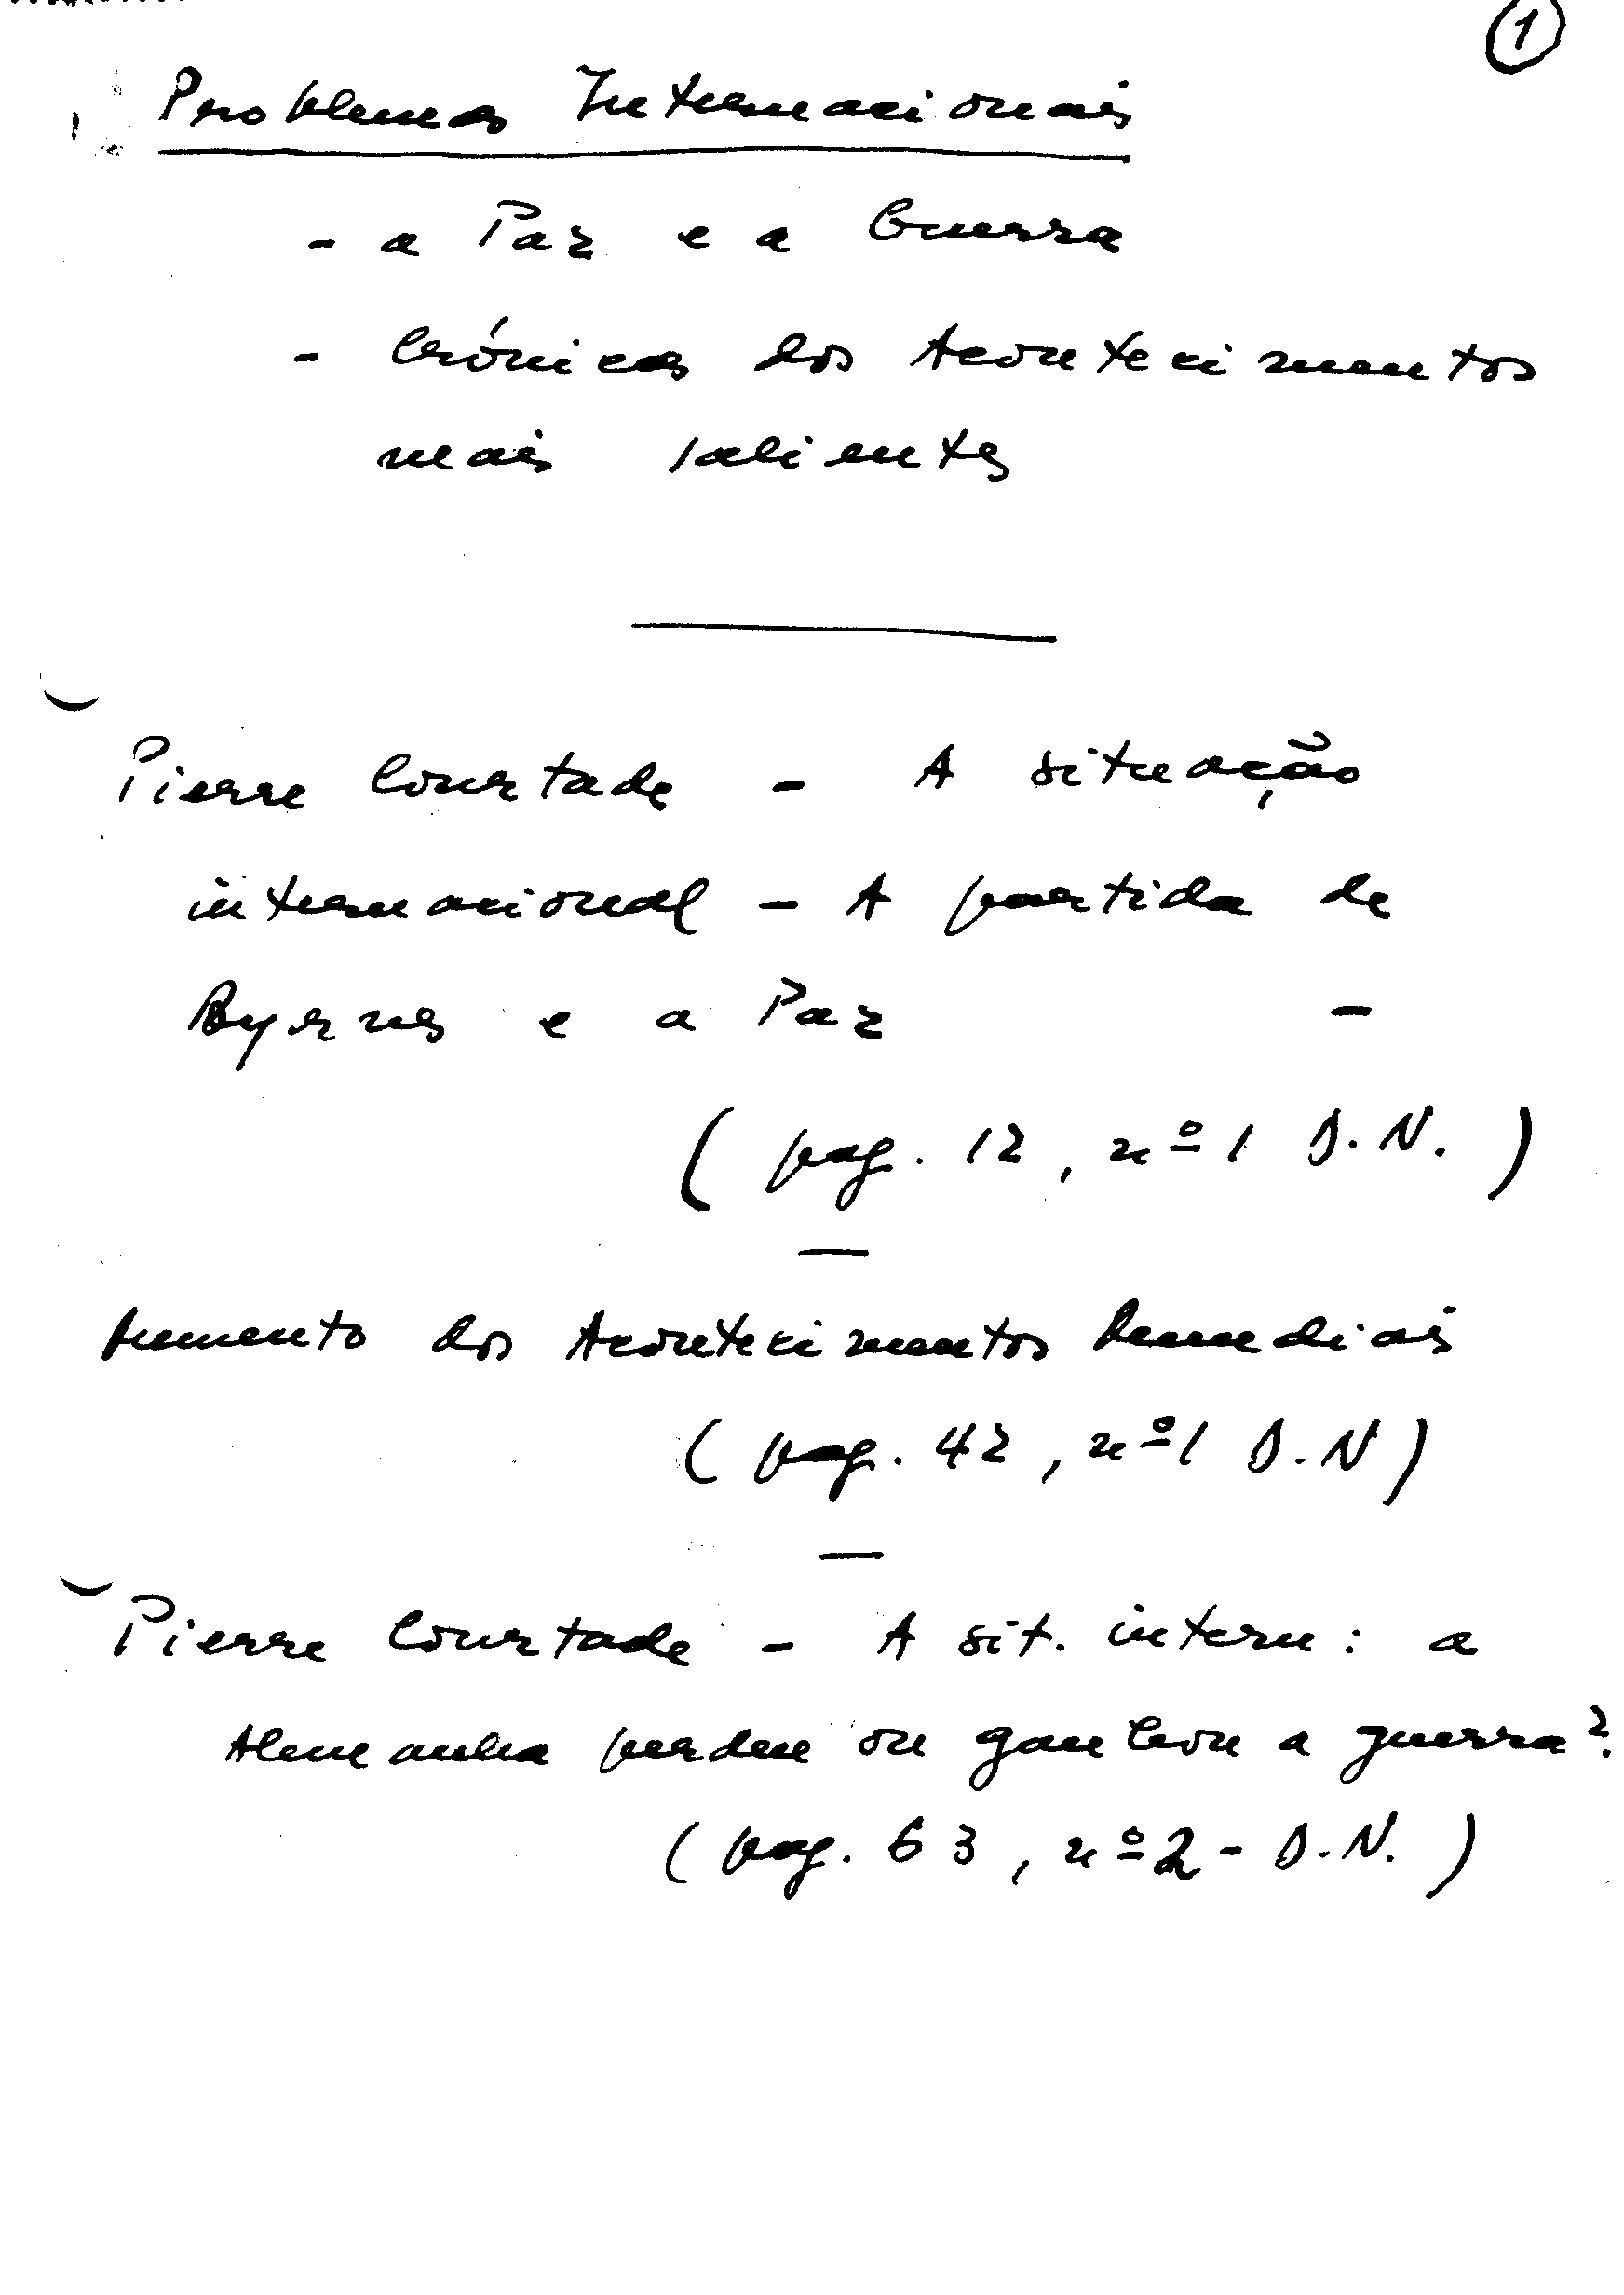 1
Problemas Internacionais
- a Paz e a Guerra
- Crónicas dos Acontecimentos
mais salientes
Pierre Courtade - A situação
internacional - A partida de
Byrnes e a Paz -
(pag. 12, nº 1 S.N.)
dos Acontecimentos
(pag. 42, nº 1 S.N)
Pierre Courtade - A sit. intern: a
Alemanha perdeu ou ganhou a guerra?
(pag. 63, nº 2 - S.N.)